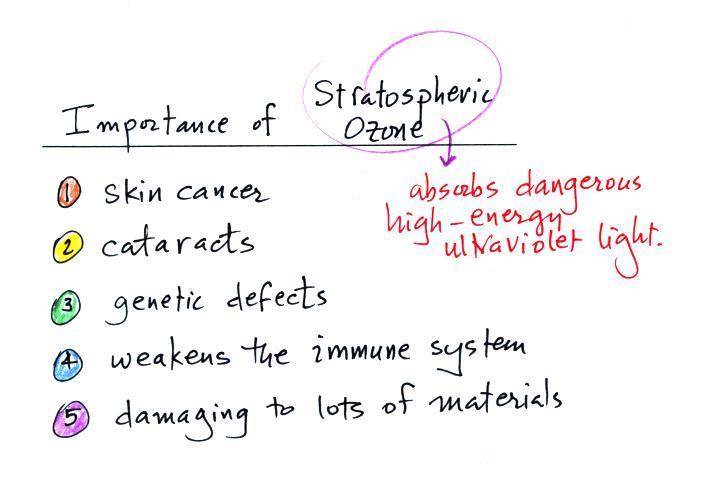 Importance of Stratospheric Ozone
absorbs dangerous
high-energy
ultraviolet light.
1 skin cancer
2 cataracts
3 genetic defects
4 weakens the immune system
5 damaging to lots of materials